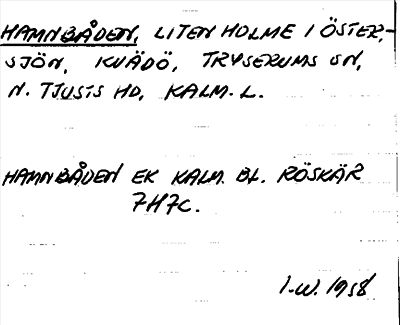 HAMNBÅDEN, LITEN HOLME I ÖSTER-
SJÖN, KVÄDÖ, TRYSERUMS SN,
N. TJUSTS HD, KALM. L.
HAMNBÅDEN EK KALM. BL. RÖSKÄR
7H7C.
I.W. 1958